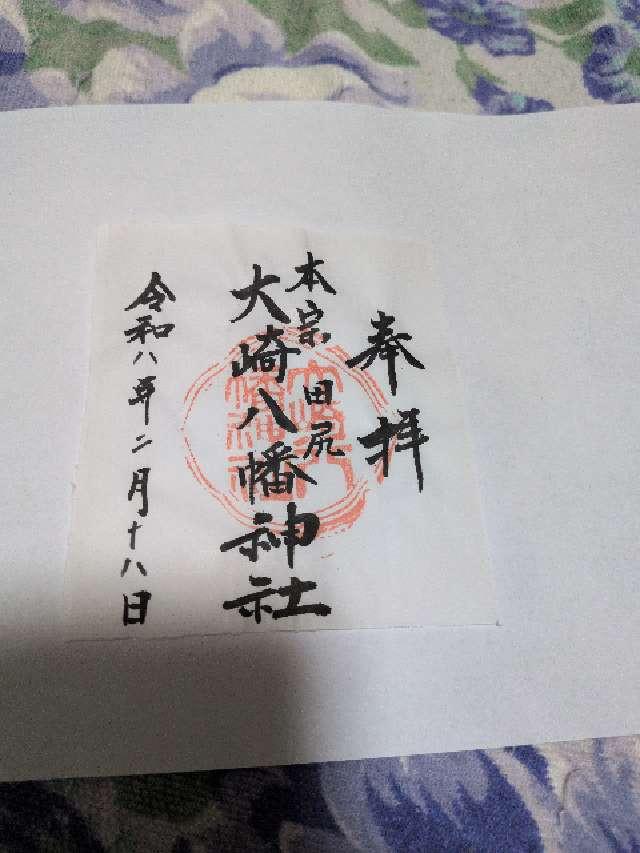 奉拝
本宗 田尻
大崎八幡神社
令和八年二月十八日